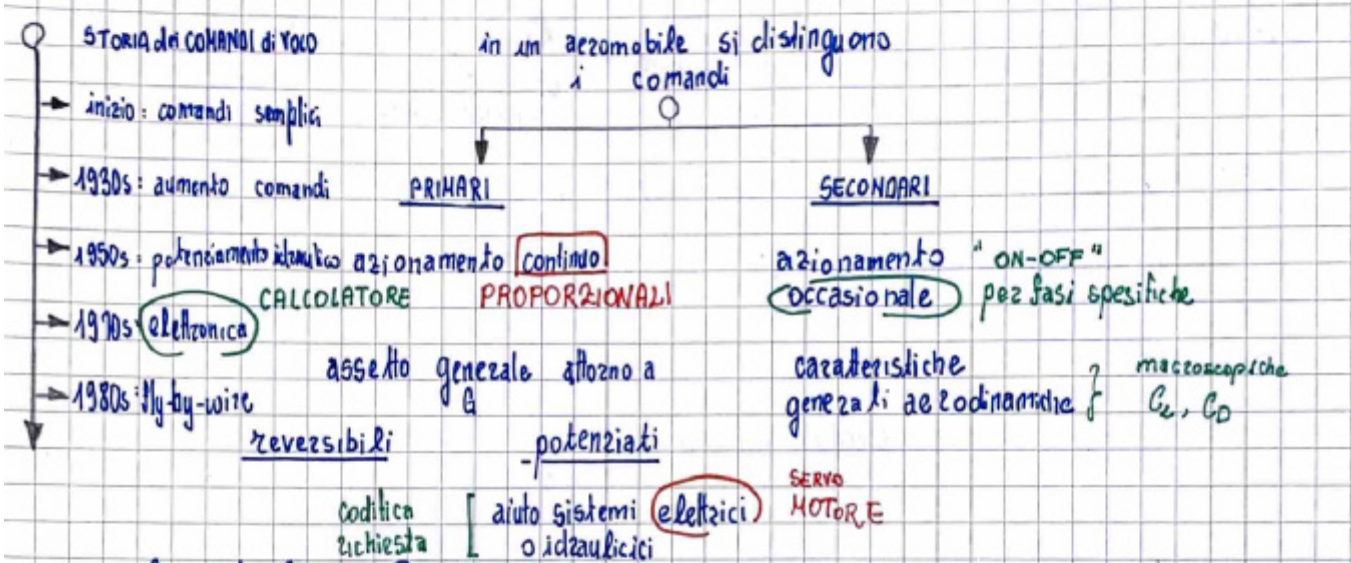 STORIA dei COMANDI di VOLO
inizio: comandi semplici
1930s: aumento comandi
1950s: potenziamento idraulico
1970s: elettronica
CALCOLATORE
1980s: fly-by-wire
in un aeromobile si distinguono
i comandi
PRIMARI
azionamento continuo
PROPORZIONALI
assetto generale attorno a
G
reversibili
potenziati
codifica
richiesta
aiuto sistemi elettrici
o idraulicici
SERVO
MOTORE
SECONDARI
azionamento "ON-OFF"
occasionale per fasi spesifiche
caratteristiche
generali aerodinamiche
macroscopiche
CL, CD